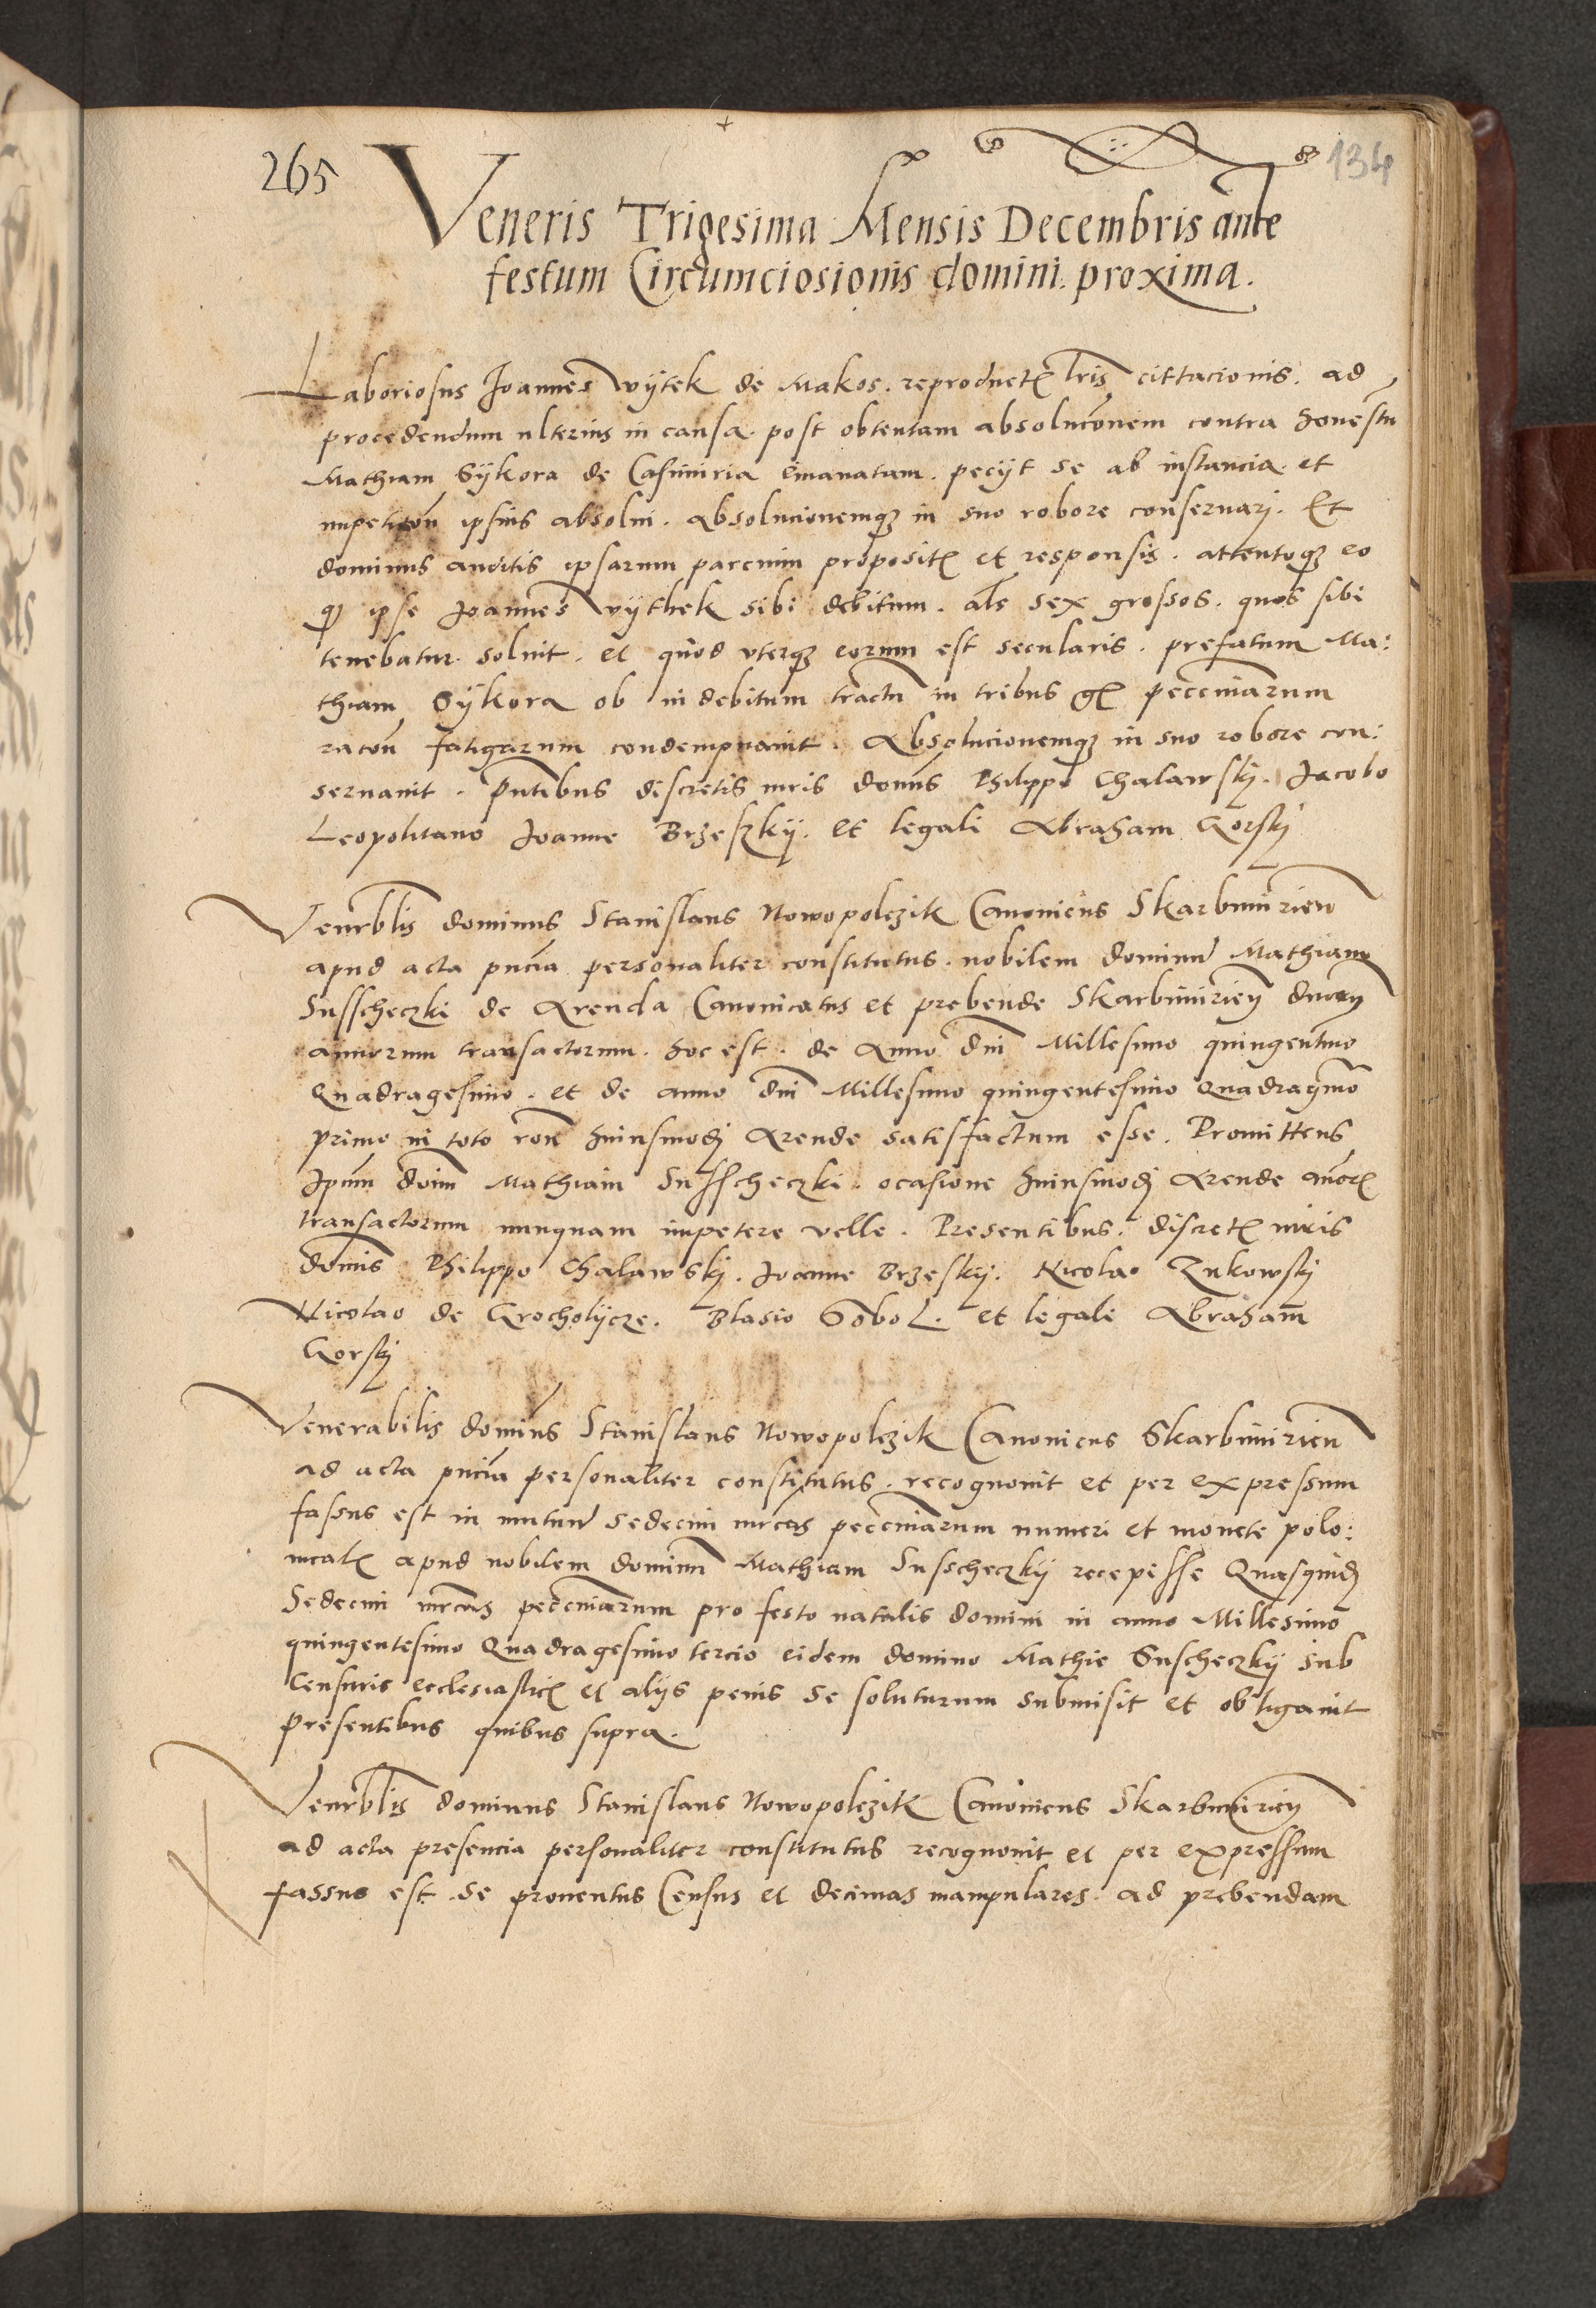 265
134
Veneris Trigesima Mensis Decembris ante
festum Circumciosionis domini proxima.
Laboriosus Joannes Vÿtek de Makos. reproductis lris cittacionis. ad
procedendum ulterius in causa. post obtentam absolucōnem contra honestū
Mathiam Sÿkora de Casimiria emanatam. pecÿt se ab instancia. et
impeticōn ipsius absolui. Absolucionemqꝫ in suo robore conseruarj. Et
dominus auditis ipsarum parcium propositis et responsis. attentoqꝫ eo
qꝫ ipse Joannes Vÿthek sibi debitum. als sex grossos. quos sibi
tenebatur soluit. et quod vterqꝫ eorum est secularis. prefatum Ma:
thiam Sÿkora ob indebitum tractū in tribus gs pecceniarum
racōn fatigarum condempnauit. Absolucionemqꝫ in suo robore con:
seruauit. Pn̄tibus discretis uiris domis Philippo Chalawskj. Jacobo
Leopolitano Joanne Brzeszkÿ. et legali Abraham Gorskj
Venrblis dominus Stanislaus Nowopolczik Canonicus Skarbimirien
apud acta pn̄cia personaliter constitutus. nobilem dominū Mathiam
Susscheczki de Arenda Canonicatus et prebende Skarbimirien duorū
annorum transactorum. hoc est. de Anno dni Millesimo quingentmo
Quadragesimo. et de anno dni Millesimo quingentesimo Quadragmo
primo in toto rōne huiusmodj Arende satisfactum esse. Promittens
Ipūm doīm Mathiam Susscheczki. ocasione huiusmodj Arende an̄ors
transactorum nunquam impetere velle. Presentibus. discretis uiris
domis Philippo Chalawskj. Joanne Brzeskÿ. Nicolao Zukowskj
Nicolao de Grocholÿcze. Blasio Sobol. et legali Abraham
Gorskj
Venerabilis dominus Stanislaus Nowopolczik Canonicus Skarbimirien
ad acta pn̄cia personaliter constitutus. recognouit et per expressum
fassus est in mutuū sedecim mrcas pecceniarum numeri et monete polo:
nicalis apud nobilem dominū Mathiam Susscheczkÿ recepisse Quasquidj
Sedecim mrcas pecceniarum pro festo natalis domini in anno Millesimo
quingentesimo Quadragesimo tercio eidem domino Mathie Suscheczkÿ sub
Censuris ecclesiasticis et alÿs penis se soluturum submisit et obligauit
presentibus quibus supra.
Venrblis dominus Stanislaus Nowopolczik Canonicus Skarbimirien
ad acta presencia personaliter constitutus recognouit et per expressum
fassus est se prouentus Census et decimas manipulares. ad prebendam